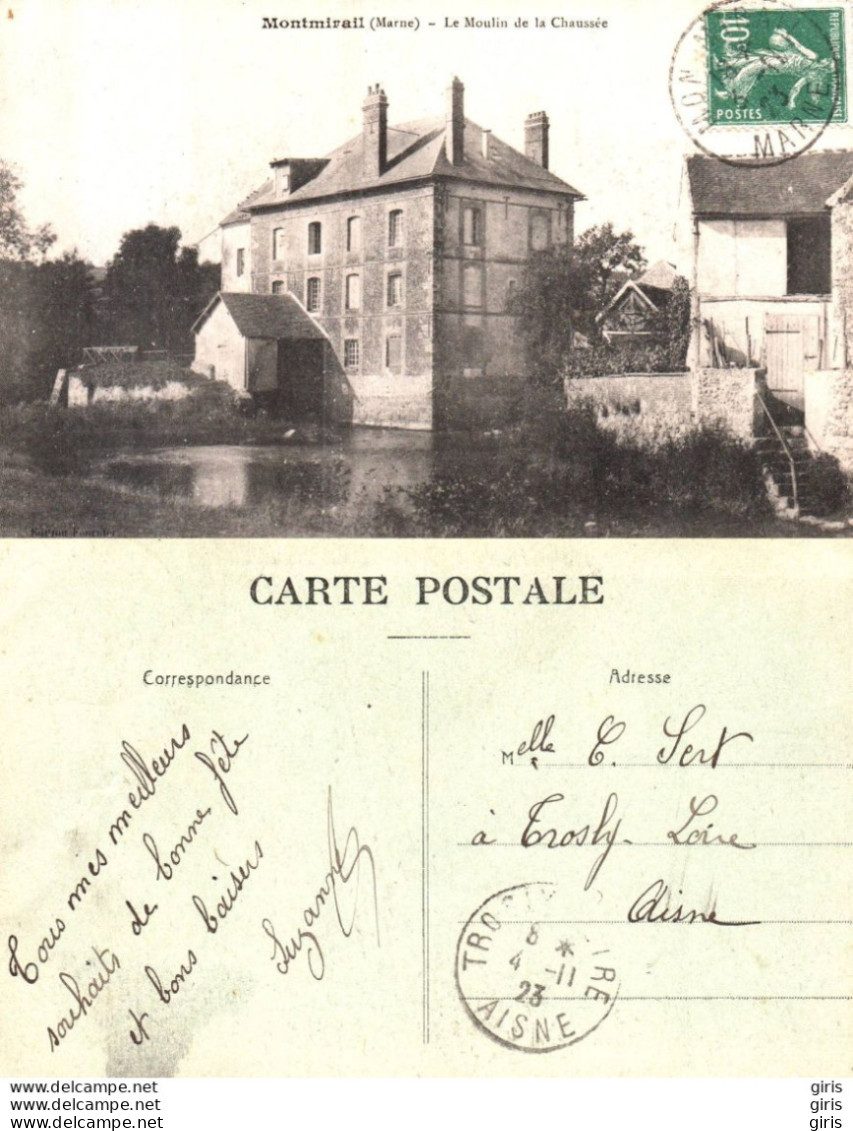 Montmirail (Marne) - Le Moulin de la Chaussée
10
REPUBLIQUE FRANÇAISE
POSTES
MARNE
23
CARTE POSTALE
Correspondance
Adresse
Tous mes meilleurs
souhaits de bonne fête
et bons baisers
Suzanne
Melle C. Sert
à Trosly-Loire
Aisne
TROSLY LOIRE
8 *
4 -11
23
AISNE
www.delcampe.net
www.delcampe.net
www.delcampe.net
giris
giris
giris